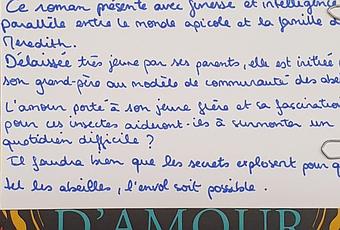 Ce roman présente avec finesse et intelligence
parallèle entre le monde apicole et la famille d
Meredith.
Délaissée très jeune par ses parents, elle est initiée
son grand-père au modèle de communauté des abe
L'amour porté à son jeune frère et sa fascination
pour ces insectes aideront-ils à surmonter un
quotidien difficile ?
Il faudra bien que les secrets explosent pour q
tel les abeilles, l'envol soit possible.
D'AMOUR